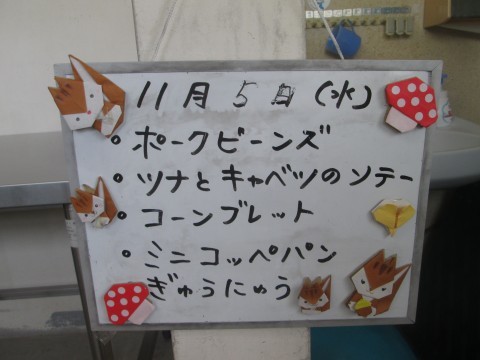 11月 5日(水)
・ポークビーンズ
・ツナとキャベツのソテー
・コーンブレット
・ミニコッペパン
ぎゅうにゅう